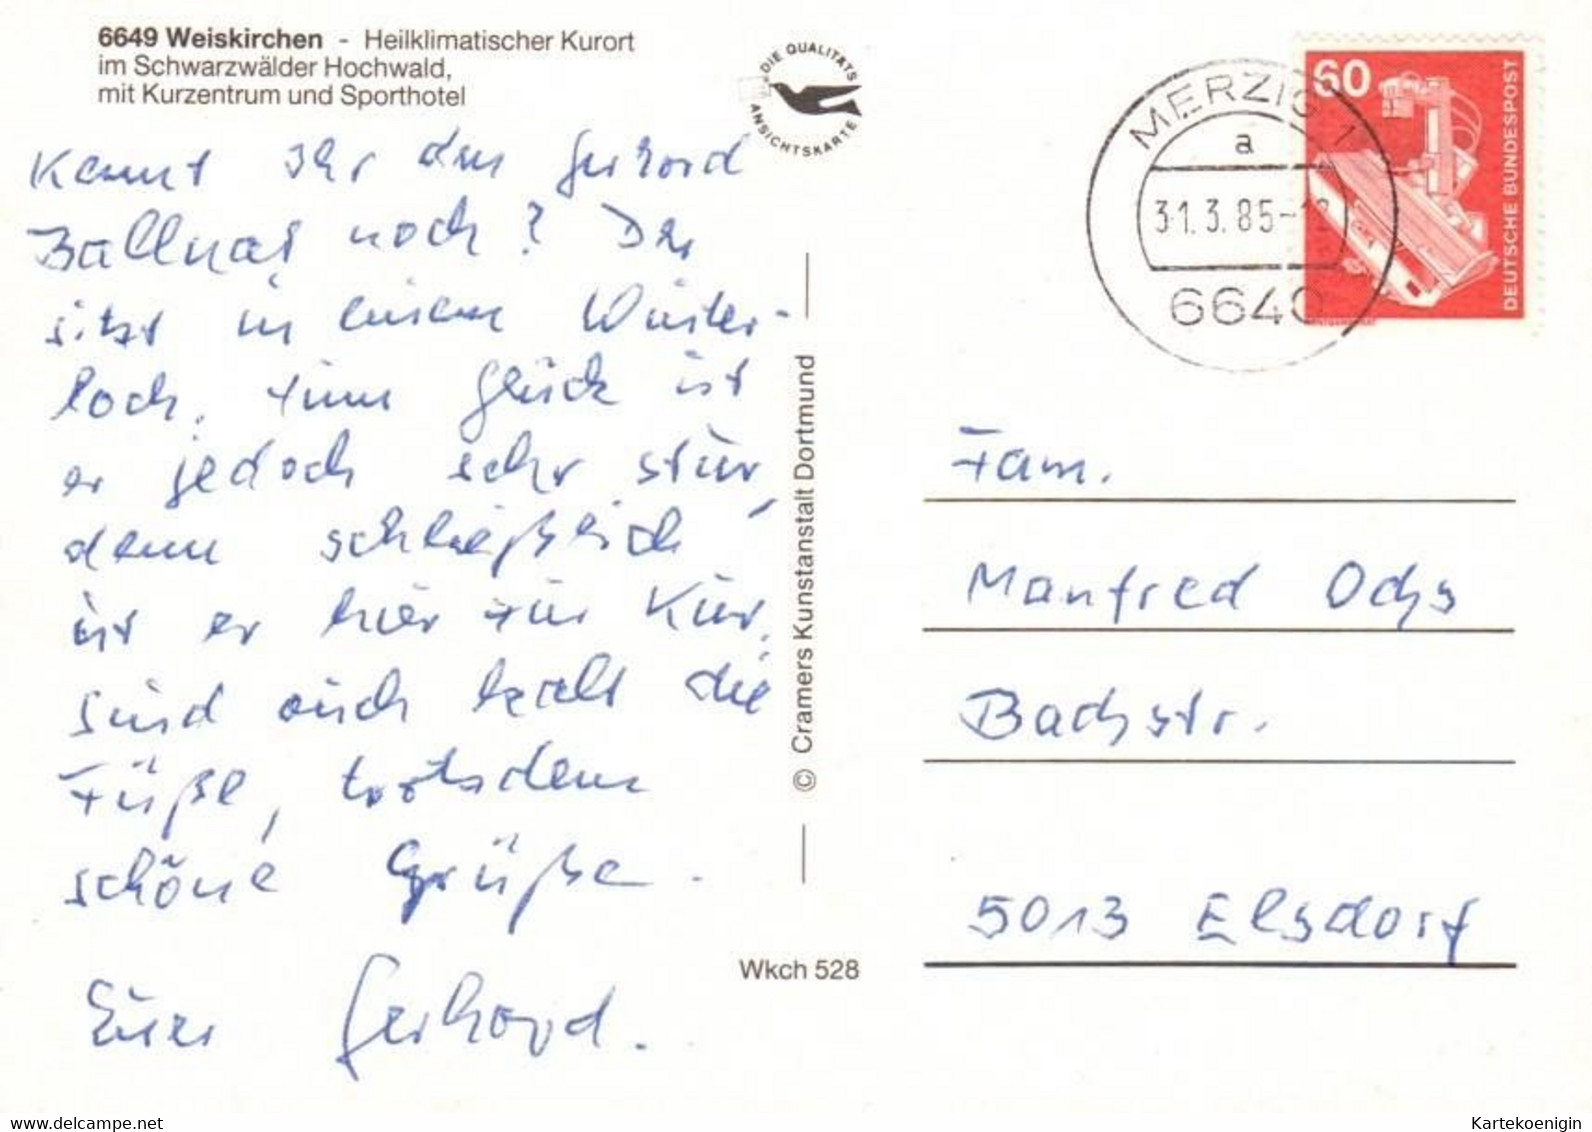 6649 Weiskirchen - Heilklimatischer Kurort
im Schwarzwälder Hochwald,
mit Kurzentrum und Sporthotel
DIE QUALITÄTS
ANSICHTSKARTE
Kennt Ihr den Gerhard
Ballnat noch? Der
sitzt in einem Winter-
loch. Zum Glück ist
er jedoch sehr stur,
denn schließlich
ist er hier zur Kur.
Sind auch kalt die
Füße, trotzdem
schöne Grüße.
Euer Gerhard.
© Cramers Kunstanstalt Dortmund
Wkch 528
MERZIG 1
a
31.3.85-12
6640
60
DEUTSCHE BUNDESPOST
Fam.
Manfred Ochs
Bachstr.
5013 Elsdorf
www.delcampe.net
Kartekoenigin